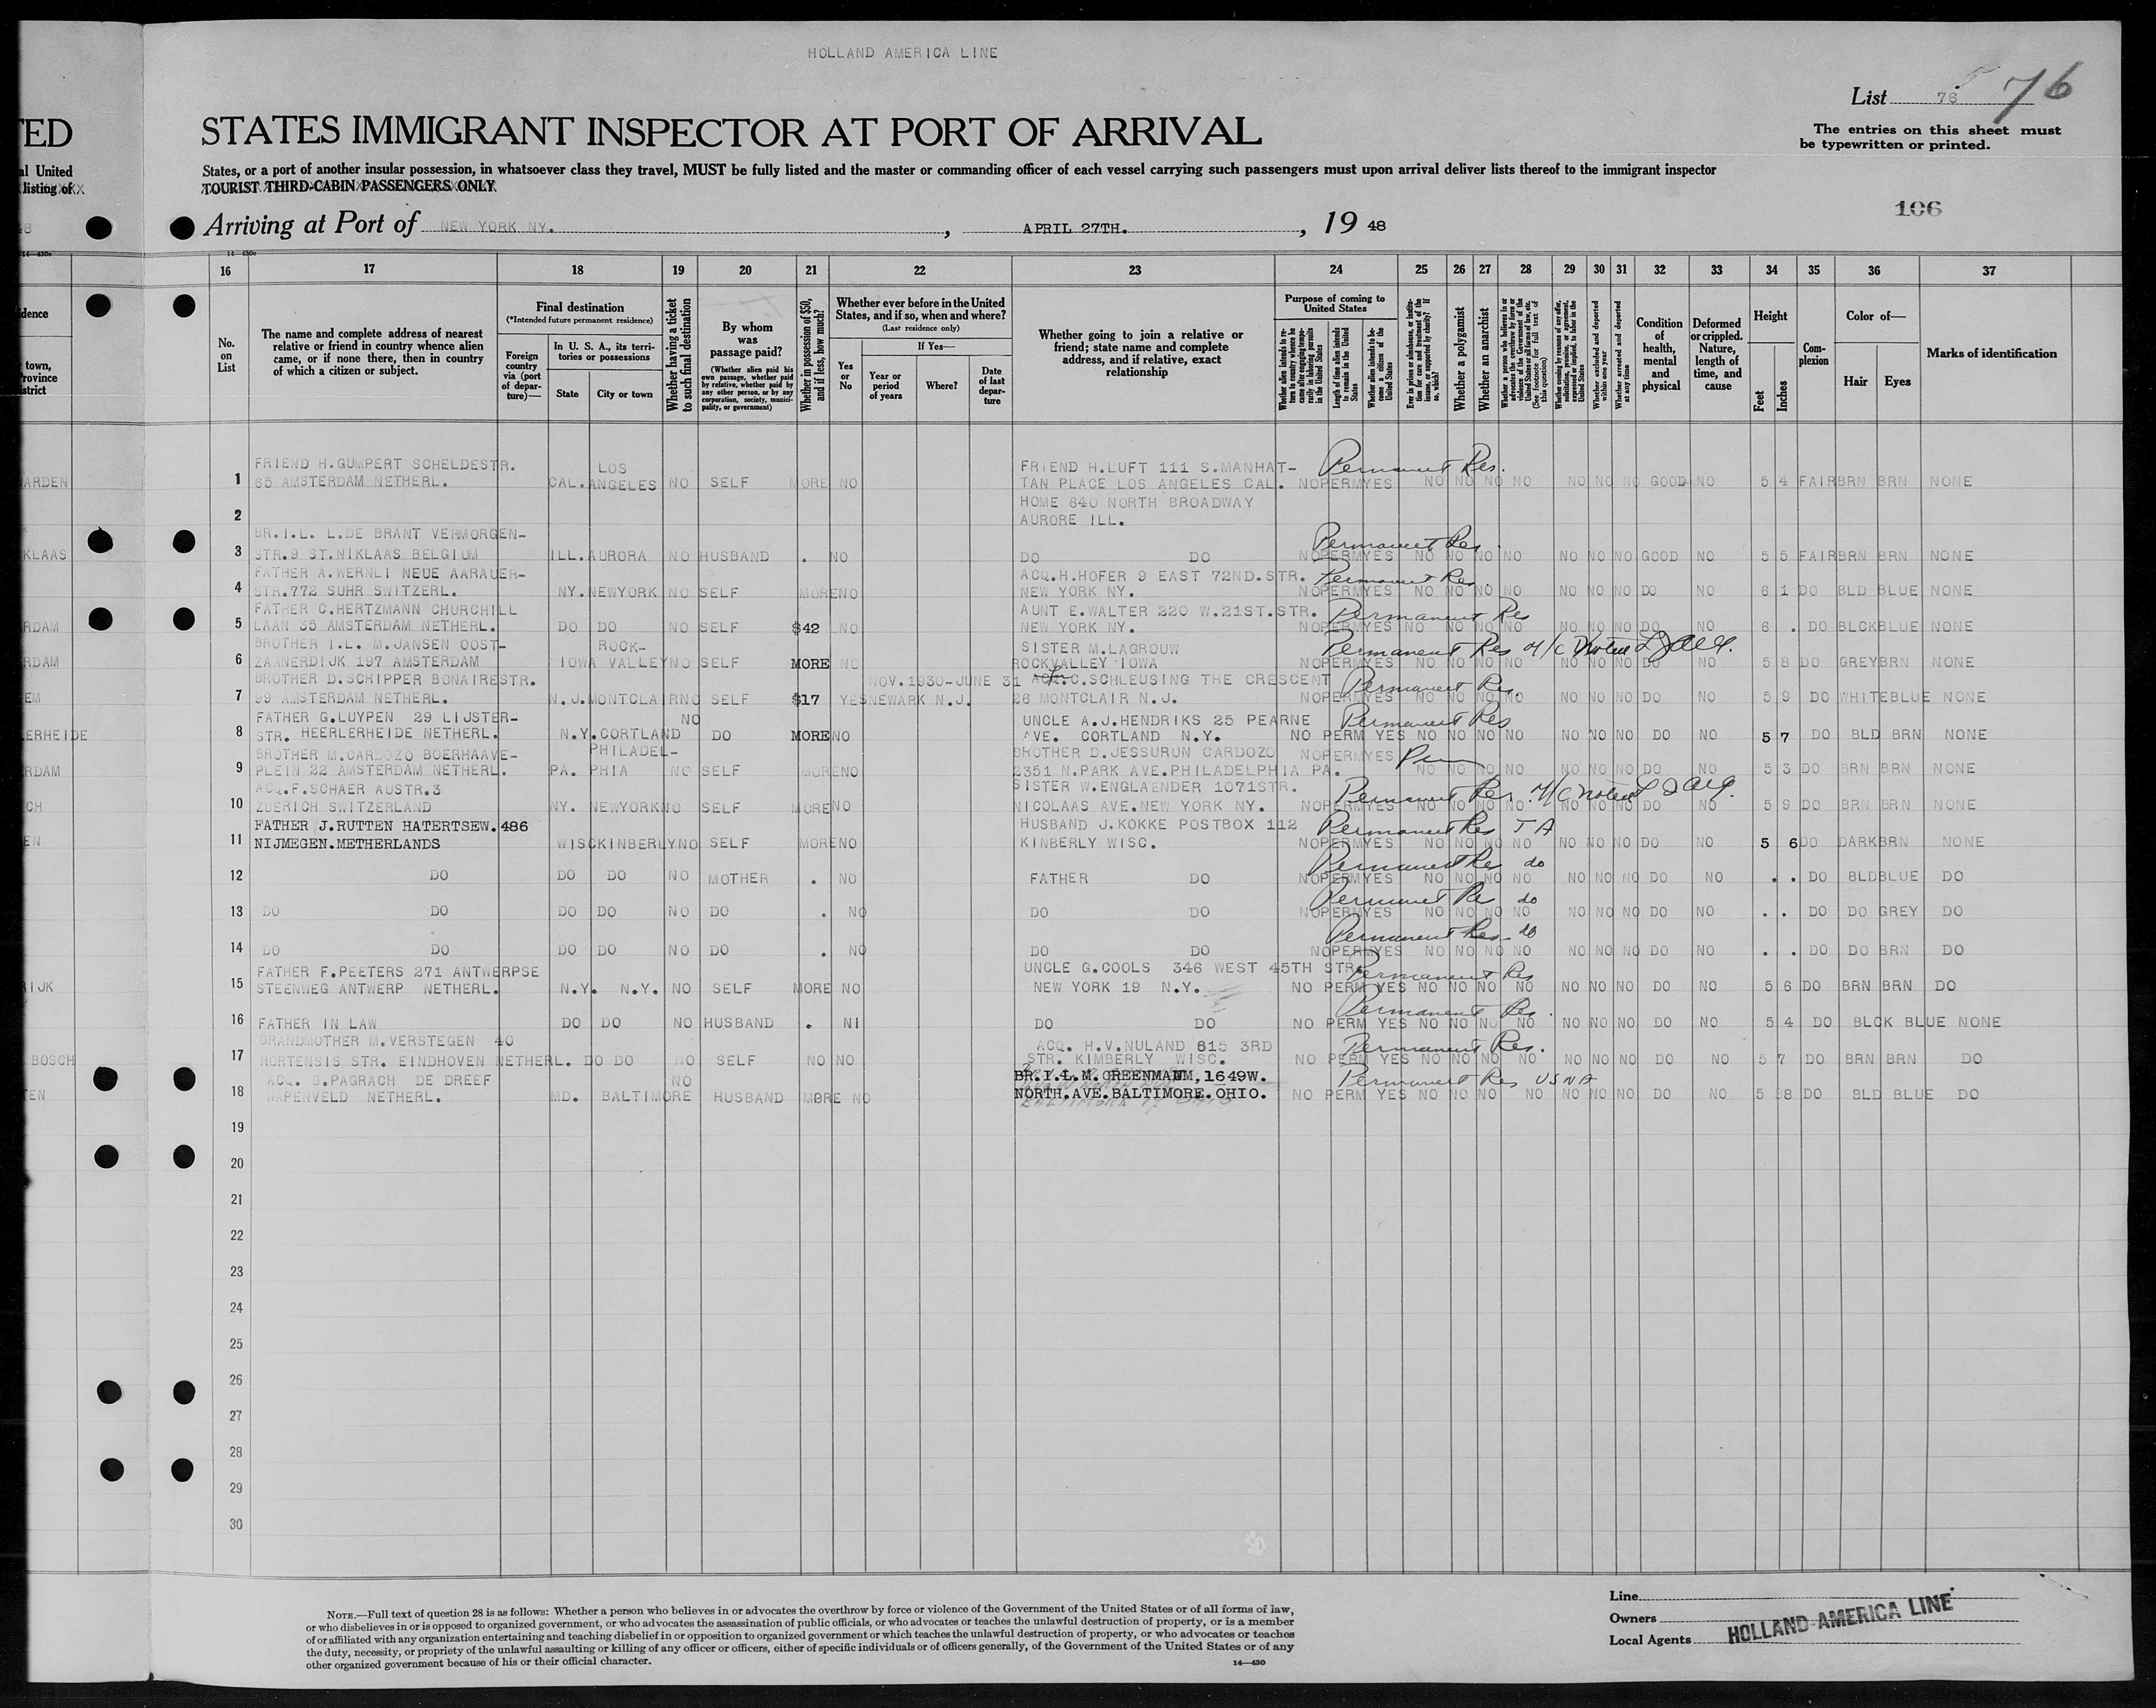 HOLLAND AMERICA LINE
List 76 76
The entries on this sheet must
be typewritten or printed.
TED
STATES IMMIGRANT INSPECTOR AT PORT OF ARRIVAL
al United
States, or a port of another insular possession, in whatsoever class they travel, MUST be fully listed and the master or commanding officer of each vessel carrying such passengers must upon arrival deliver lists thereof to the immigrant inspector
listing of
TOURIST THIRD-CABIN PASSENGERS ONLY
106
Arriving at Port of NEW YORK NY. , APRIL 27TH. , 19 48
16 17 18 19 20 21 22 23 24 25 26 27 28 29 30 31 32 33 34 35 36 37
No. on List
The name and complete address of nearest relative or friend in country whence alien came, or if none there, then in country of which a citizen or subject.
Final destination
(*Intended future permanent residence)
Foreign country via (port of departure)—
In U. S. A., its territories or possessions
State City or town
Whether having a ticket to such final destination
By whom was passage paid?
(Whether alien paid his own passage, whether paid by relative, whether paid by any other person, or by any corporation, society, municipality, or government)
Whether in possession of $50, and if less, how much?
Whether ever before in the United States, and if so, when and where?
(Last residence only)
Yes or No
If Yes—
Year or period of years Where? Date of last departure
Whether going to join a relative or friend; state name and complete address, and if relative, exact relationship
Purpose of coming to United States
Length of time alien intends to remain in the United States
Whether alien intends to become a citizen of the United States
Whether a polygamist
Whether an anarchist
Whether excluded and deported within one year
Whether arrested and deported at any time
Condition of health, mental and physical
Deformed or crippled. Nature, length of time, and cause
Height
Feet Inches
Complexion
Color of—
Hair Eyes
Marks of identification
FRIEND H.GUMPERT SCHELDESTR. LOS FRIEND H.LUFT 111 S.MANHAT- Permanent Res.
1 65 AMSTERDAM NETHERL. CAL. ANGELES NO SELF MORE NO TAN PLACE LOS ANGELES CAL. NO PERM YES NO NO NO NO NO NO NO GOOD NO 5 4 FAIR BRN BRN NONE
2 HOME 640 NORTH BROADWAY
AURORE ILL.
BR.I.L. L.DE BRANT VERMORGEN- Permanent Res.
3 STR.9 ST.NIKLAAS BELGIUM ILL. AURORA NO HUSBAND . NO DO DO NO PERM YES NO NO NO NO NO NO NO GOOD NO 5 5 FAIR BRN BRN NONE
FATHER A.WERNLI NEUE AARAUER- ACQ.H.HOFER 9 EAST 72ND.STR. Permanent Res.
4 STR.772 SUHR SWITZERL. NY. NEWYORK NO SELF MORE NO NEW YORK NY. NO PERM YES NO NO NO NO NO NO NO DO NO 6 1 DO BLD BLUE NONE
FATHER C.HERTZMANN CHURCHILL AUNT E.WALTER 220 W.21ST.STR. Permanent Res
5 LAAN 35 AMSTERDAM NETHERL. DO DO NO SELF $42 NO NEW YORK NY. NO PERM YES NO NO NO NO NO NO NO DO NO 6 . DO BLCK BLUE NONE
BROTHER I.L. M.JANSEN OOST- ROCK- SISTER M.LAGROUW Permanent Res
6 ZAANERDIJK 197 AMSTERDAM IOWA VALLEY NO SELF MORE NO ROCKVALLEY IOWA NO PERM YES NO NO NO NO NO NO NO DO NO 5 8 DO GREY BRN NONE
BROTHER D.SCHIPPER BONAIRESTR. NOV.1930-JUNE 31 C.SCHLEUSING THE CRESCENT Permanent Res.
7 99 AMSTERDAM NETHERL. N.J. MONTCLAIR NO SELF $17 YES NEWARK N.J. 26 MONTCLAIR N.J. NO PERM YES NO NO NO NO NO NO NO DO NO 5 9 DO WHITE BLUE NONE
FATHER G.LUYPEN 29 LIJSTER- NO UNCLE A.J.HENDRIKS 25 PEARNE Permanent Res
8 STR. HEERLERHEIDE NETHERL. N.Y. CORTLAND DO MORE NO AVE. CORTLAND N.Y. NO PERM YES NO NO NO NO NO NO NO DO NO 5 7 DO BLD BRN NONE
BROTHER M.CARDOZO BOERHAAVE- PHILADEL- BROTHER D.JESSURUN CARDOZO
9 PLEIN 22 AMSTERDAM NETHERL. PA. PHIA NO SELF MORE NO 2351 N.PARK AVE.PHILADELPHIA PA. NO PERM YES NO NO NO NO NO NO NO DO NO 5 3 DO BRN BRN NONE
ACQ.F.SCHAER AUSTR.3 SISTER W.ENGLAENDER 1071STR. Permanent Res.
10 ZUERICH SWITZERLAND NY. NEWYORK NO SELF MORE NO NICOLAAS AVE.NEW YORK NY. NO PERM YES NO NO NO NO NO NO NO DO NO 5 9 DO BRN BRN NONE
FATHER J.RUTTEN HATERTSEW.486 HUSBAND J.KOKKE POSTBOX 112 Permanent Res T A
11 NIJMEGEN.METHERLANDS WISC KINBERLY NO SELF MORE NO KINBERLY WISC. NO PERM YES NO NO NO NO NO NO NO DO NO 5 6 DO DARK BRN NONE
Permanent Res do
12 DO DO DO NO MOTHER . NO FATHER DO NO PERM YES NO NO NO NO NO NO NO DO NO . . DO BLD BLUE DO
Permanent Re do
13 DO DO DO DO NO DO . NO DO DO NO PERM YES NO NO NO NO NO NO NO DO NO . . DO DO GREY DO
Permanent Res. do
14 DO DO DO DO NO DO . NO DO DO NO PERM YES NO NO NO NO NO NO NO DO NO . . DO DO BRN DO
FATHER F.PEETERS 271 ANTWERPSE UNCLE G.COOLS 346 WEST 45TH STR. Permanent Res
15 STEENWEG ANTWERP NETHERL. N.Y. N.Y. NO SELF MORE NO NEW YORK 19 N.Y. NO PERM YES NO NO NO NO NO NO NO DO NO 5 6 DO BRN BRN DO
Permanent Res.
16 FATHER IN LAW DO DO NO HUSBAND . NI DO DO NO PERM YES NO NO NO NO NO NO NO DO NO 5 4 DO BLCK BLUE NONE
GRANDMOTHER M.VERSTEGEN 40 ACQ. H.V.NULAND 615 3RD Permanent Res.
17 HORTENSIS STR. EINDHOVEN NETHERL. DO DO NO SELF NO NO STR. KIMBERLY WISC. NO PERM YES NO NO NO NO NO NO NO DO NO 5 7 DO BRN BRN DO
ACQ. B.PAGRACH DE DREEF NO BR.I.L.M.GREENMANN,1649W. Permanent Res USNA
18 WAPENVELD NETHERL. MD. BALTIMORE HUSBAND MORE NO NORTH.AVE.BALTIMORE.OHIO. NO PERM YES NO NO NO NO NO NO NO DO NO 5 8 DO BLD BLUE DO
19
20
21
22
23
24
25
26
27
28
29
30
Line
Owners
Local Agents HOLLAND-AMERICA LINE
NOTE.—Full text of question 28 is as follows: Whether a person who believes in or advocates the overthrow by force or violence of the Government of the United States or of all forms of law,
or who disbelieves in or is opposed to organized government, or who advocates the assassination of public officials, or who advocates or teaches the unlawful destruction of property, or is a member
of or affiliated with any organization entertaining and teaching disbelief in or opposition to organized government or which teaches the unlawful destruction of property, or who advocates or teaches
the duty, necessity, or propriety of the unlawful assaulting or killing of any officer or officers, either of specific individuals or of officers generally, of the Government of the United States or of any
other organized government because of his or their official character.
14—430